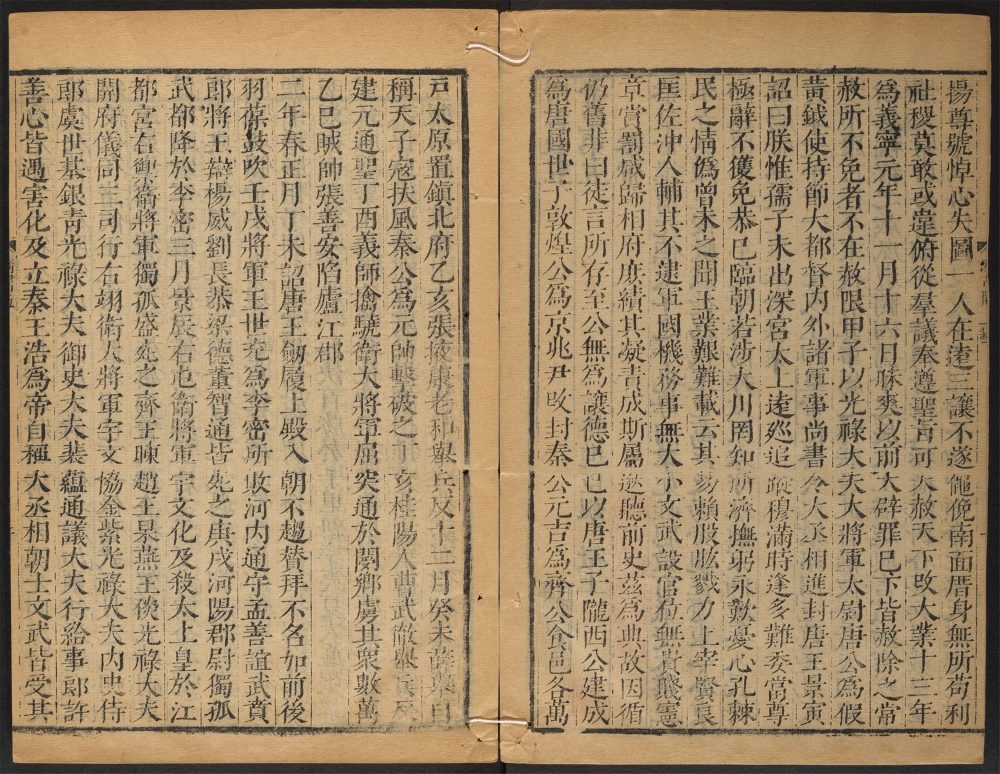 揚尊號悼心失圖一人在遠三讓不遂僶俛南面厝身無所苟利
社稷莫敢或違俯從羣議奉遵聖旨可大赦天下改大業十三年
為義寧元年十一月十六日昧爽以前大辟罪已下皆赦除之常
赦所不免者不在赦限甲子以光祿大夫大將軍太尉唐公為假
黃鉞使持節大都督內外諸軍事尚書令大丞相進封唐王景寅
詔曰朕惟孺子未出深宮太上遠巡追蹤穆滿時逢多難委當尊
極辭不獲免恭已臨朝若涉大川罔知所濟撫躬永歎憂心孔棘
民之情偽曾未之聞王業艱難載云其易賴股肱戮力上宰賢良
匡佐沖人輔其不逮軍國機務事無大小文武設官位無貴賤憲
章賞罰咸歸相府庶績其凝責成斯屬逖聽前史茲為典故因循
仍舊非曰徒言所存至公無為讓德已巳以唐王子隴西公建成
為唐國世子敦煌公為京兆尹改封秦公元吉為齊公食邑各萬
戸太原置鎮北府乙亥張掖康老和舉兵反十二月癸未薛舉自
稱天子寇扶風秦公為元帥擊破之丁亥桂陽人曹武徹舉兵反
建元通聖丁酉義師擒驍衛大將軍屈突通於閿鄉虜其衆數萬
乙巳賊帥張善安陷廬江郡
二年春正月丁未詔唐王劒履上殿入朝不趨贊拜不名加前後
羽葆鼓吹壬戌將軍王世充為李密所敗河內通守孟善誼武賁
郎將王辯楊威劉長恭梁德董智通皆死之庚戌河陽郡尉獨孤
武都降於李密三月景辰右屯衛將軍宇文化及殺太上皇於江
都宮右禦衛將軍獨孤盛死之齊王暕趙王杲燕王倓光祿大夫
開府儀同三司行右翊衛大將軍宇文協金紫光祿大夫內史侍
郎虞世基銀青光祿大夫御史大夫裴蘊通議大夫行給事郎許
善心皆遇害化及立秦王浩為帝自稱大丞相朝士文武皆受其